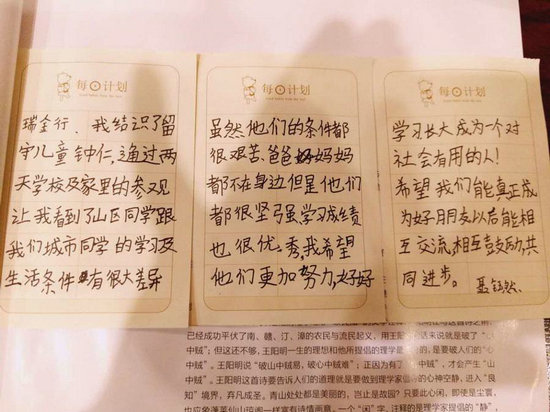 每日计划
瑞金行、我结识了留
守儿童钟仁,通过两
天学校及家里的参观
让我看到了山区同学跟
我们城市同学的学习及
生活条件有很大差异
每日计划
虽然他们的条件都
很艰苦、爸爸妈妈
都不在身边但是他们
都很坚强学习成绩
也很优秀,我希望
他们更加努力,好好
每日计划
学习长大成为一个对
社会有用的人!
希望我们能真正成
为好朋友以后能相
互交流,相互鼓励,共
同进步。 聂钰然.
已经成功平伏了南、赣、汀、漳的农民与流民起义,用王阳明
中贼”。但这还不够,王阳明一生的理想和他所提倡的理学
中贼”。王阳明说“破山中贼易,破心中贼难”;正因为有了 中贼”,才会产生“山
中贼”。王阳明这首诗要告诉人们的道理就是要做到理学家倡导的心神空静,进入“良
知”境界,弃凡成圣。青山处处都是美丽的,岂止是故园?只要此心闲,即使是尘寰,